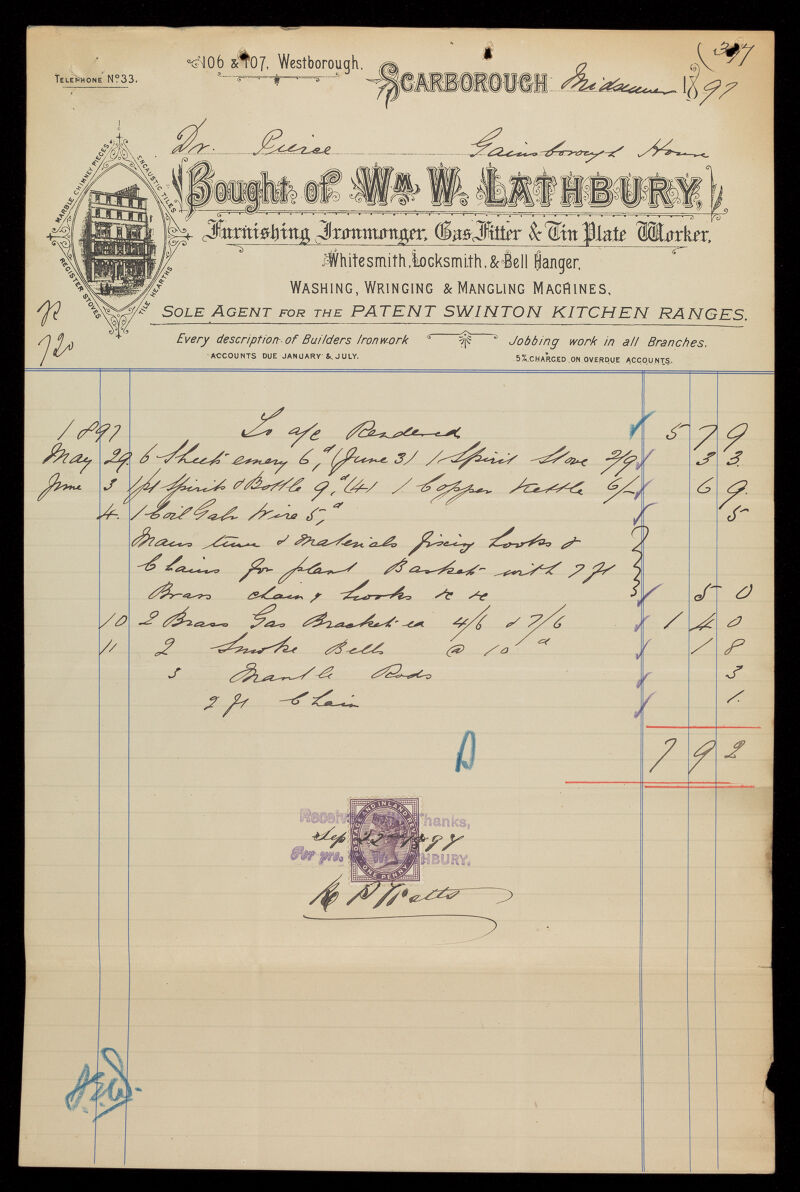 (397
106 & 107, Westborough.
TELEPHONE Nº 33.
SCARBOROUGH Midsumer 1897
Dr. Pierce Gainsborough House
MARBLE CHIMNEY PIECES
ENCAUSTIC TILES
REGISTER STOVES
TILE HEARTHS
Bought of Wm. W. LATHBURY,
Furnishing Ironmonger, Gas Fitter & Tin Plate Worker,
Whitesmith, Locksmith, & Bell Hanger,
WASHING, WRINGING & MANGLING MACHINES,
SOLE AGENT FOR THE PATENT SWINTON KITCHEN RANGES.
720
Every description of Builders Ironwork
Jobbing work in all Branches.
ACCOUNTS DUE JANUARY & JULY.
5% CHARGED ON OVERDUE ACCOUNTS.
1897 To a/c Rendered 5 7 9
May 29. 6 Sheets emery 6d, (June 3) 1 Spirit Stove 2/9 3 3.
June 3 1 pt Spirits & Bottle 9d, (4) 1 Copper Kettle 6/- 6 9.
4. 1 Coil Galv Wire 5,d 5
Mans time & Materials fixing hooks &
Chains for plant Baskets with 7 ft
Brass chain & hooks &c &c 5 0
10 2 Brass Gas Brackets ea 4/6 & 7/6 1 4 0
11 2 Smoke Bells @ 10d 1 8
3 Mantle Rods 3
2 ft Chain 1.
7 9 2
POSTAGE AND INLAND REVENUE
ONE PENNY
Received Thanks,
Sep 22 1897
For pro. W. W. LATHBURY.
Watts